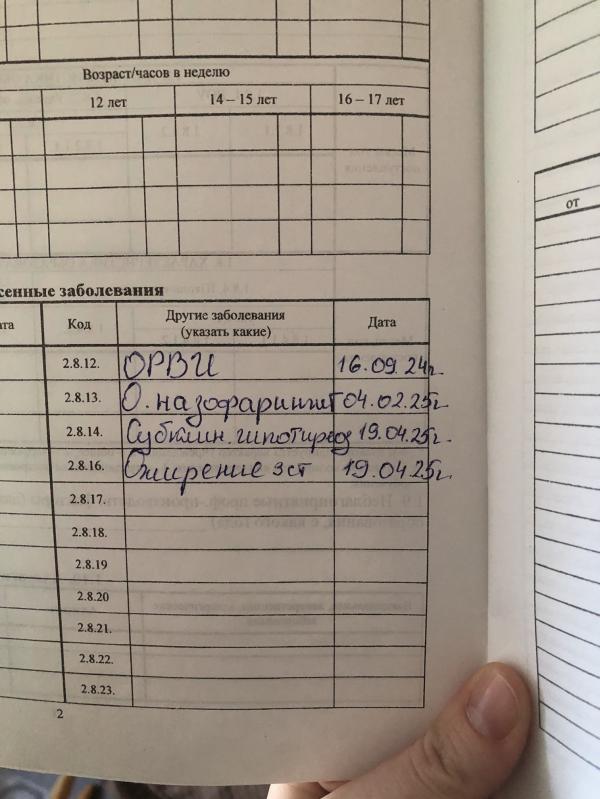 Возраст/часов в неделю
12 лет 14 – 15 лет 16 – 17 лет
от
сенные заболевания
ата Код Другие заболевания (указать какие) Дата
2.8.12. ОРВИ 16.09.24г.
2.8.13. О. назофарингит 04.02.25г.
2.8.14. Субклин. гипотиреоз 19.04.25г.
2.8.16. Ожирение 3ст 19.04.25г.
2.8.17.
2.8.18.
2.8.19
2.8.20
2.8.21.
2.8.22.
2.8.23.
2